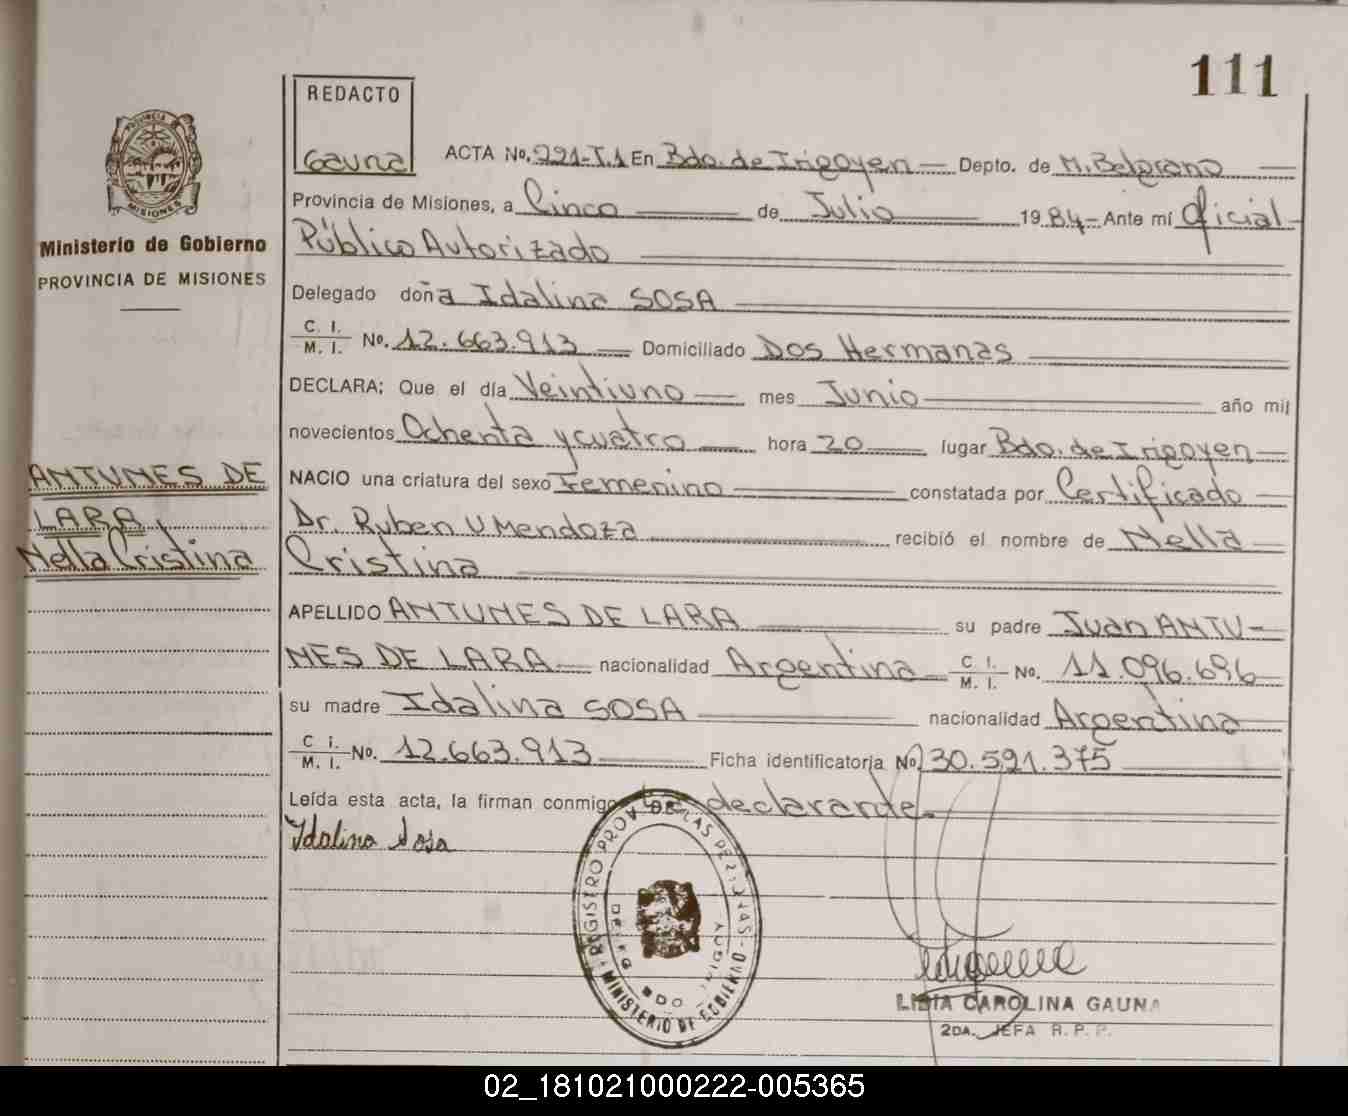 111
REDACTO
Gauna
ACTA No. 221-T.1 En Bdo. de Irigoyen Depto. de M. Belgrano
Provincia de Misiones, a Cinco de Julio 1984 Ante mí Oficial
Público Autorizado
Delegado doña Idalina SOSA
C. I.
M. I. No. 12.663.913 Domiciliado Dos Hermanas
DECLARA: Que el día Veintiuno mes Junio año mil
novecientos Ochenta y cuatro hora 20 lugar Bdo. de Irigoyen
NACIO una criatura del sexo Femenino constatada por Certificado
Dr. Ruben U Mendoza recibió el nombre de Nella
Cristina
APELLIDO ANTUNES DE LARA su padre Juan ANTU-
NES DE LARA nacionalidad Argentina C. I.
M. I. No. 11.096.696
su madre Idalina SOSA nacionalidad Argentina
C i.
M. I. No. 12.663.913 Ficha identificatoria No 30.591.375
Leída esta acta, la firman conmigo declarante.
Idalina Sosa
PROVINCIA DE
MISIONES
Ministerio de Gobierno
PROVINCIA DE MISIONES
ANTUNES DE
LARA,
Nella Cristina
REGISTRO PROV. DE LAS PERSONAS
MINISTERIO DE GOBIERNO
BDO
LIDIA CAROLINA GAUNA
2DA. JEFA R. P. P.
02_181021000222-005365